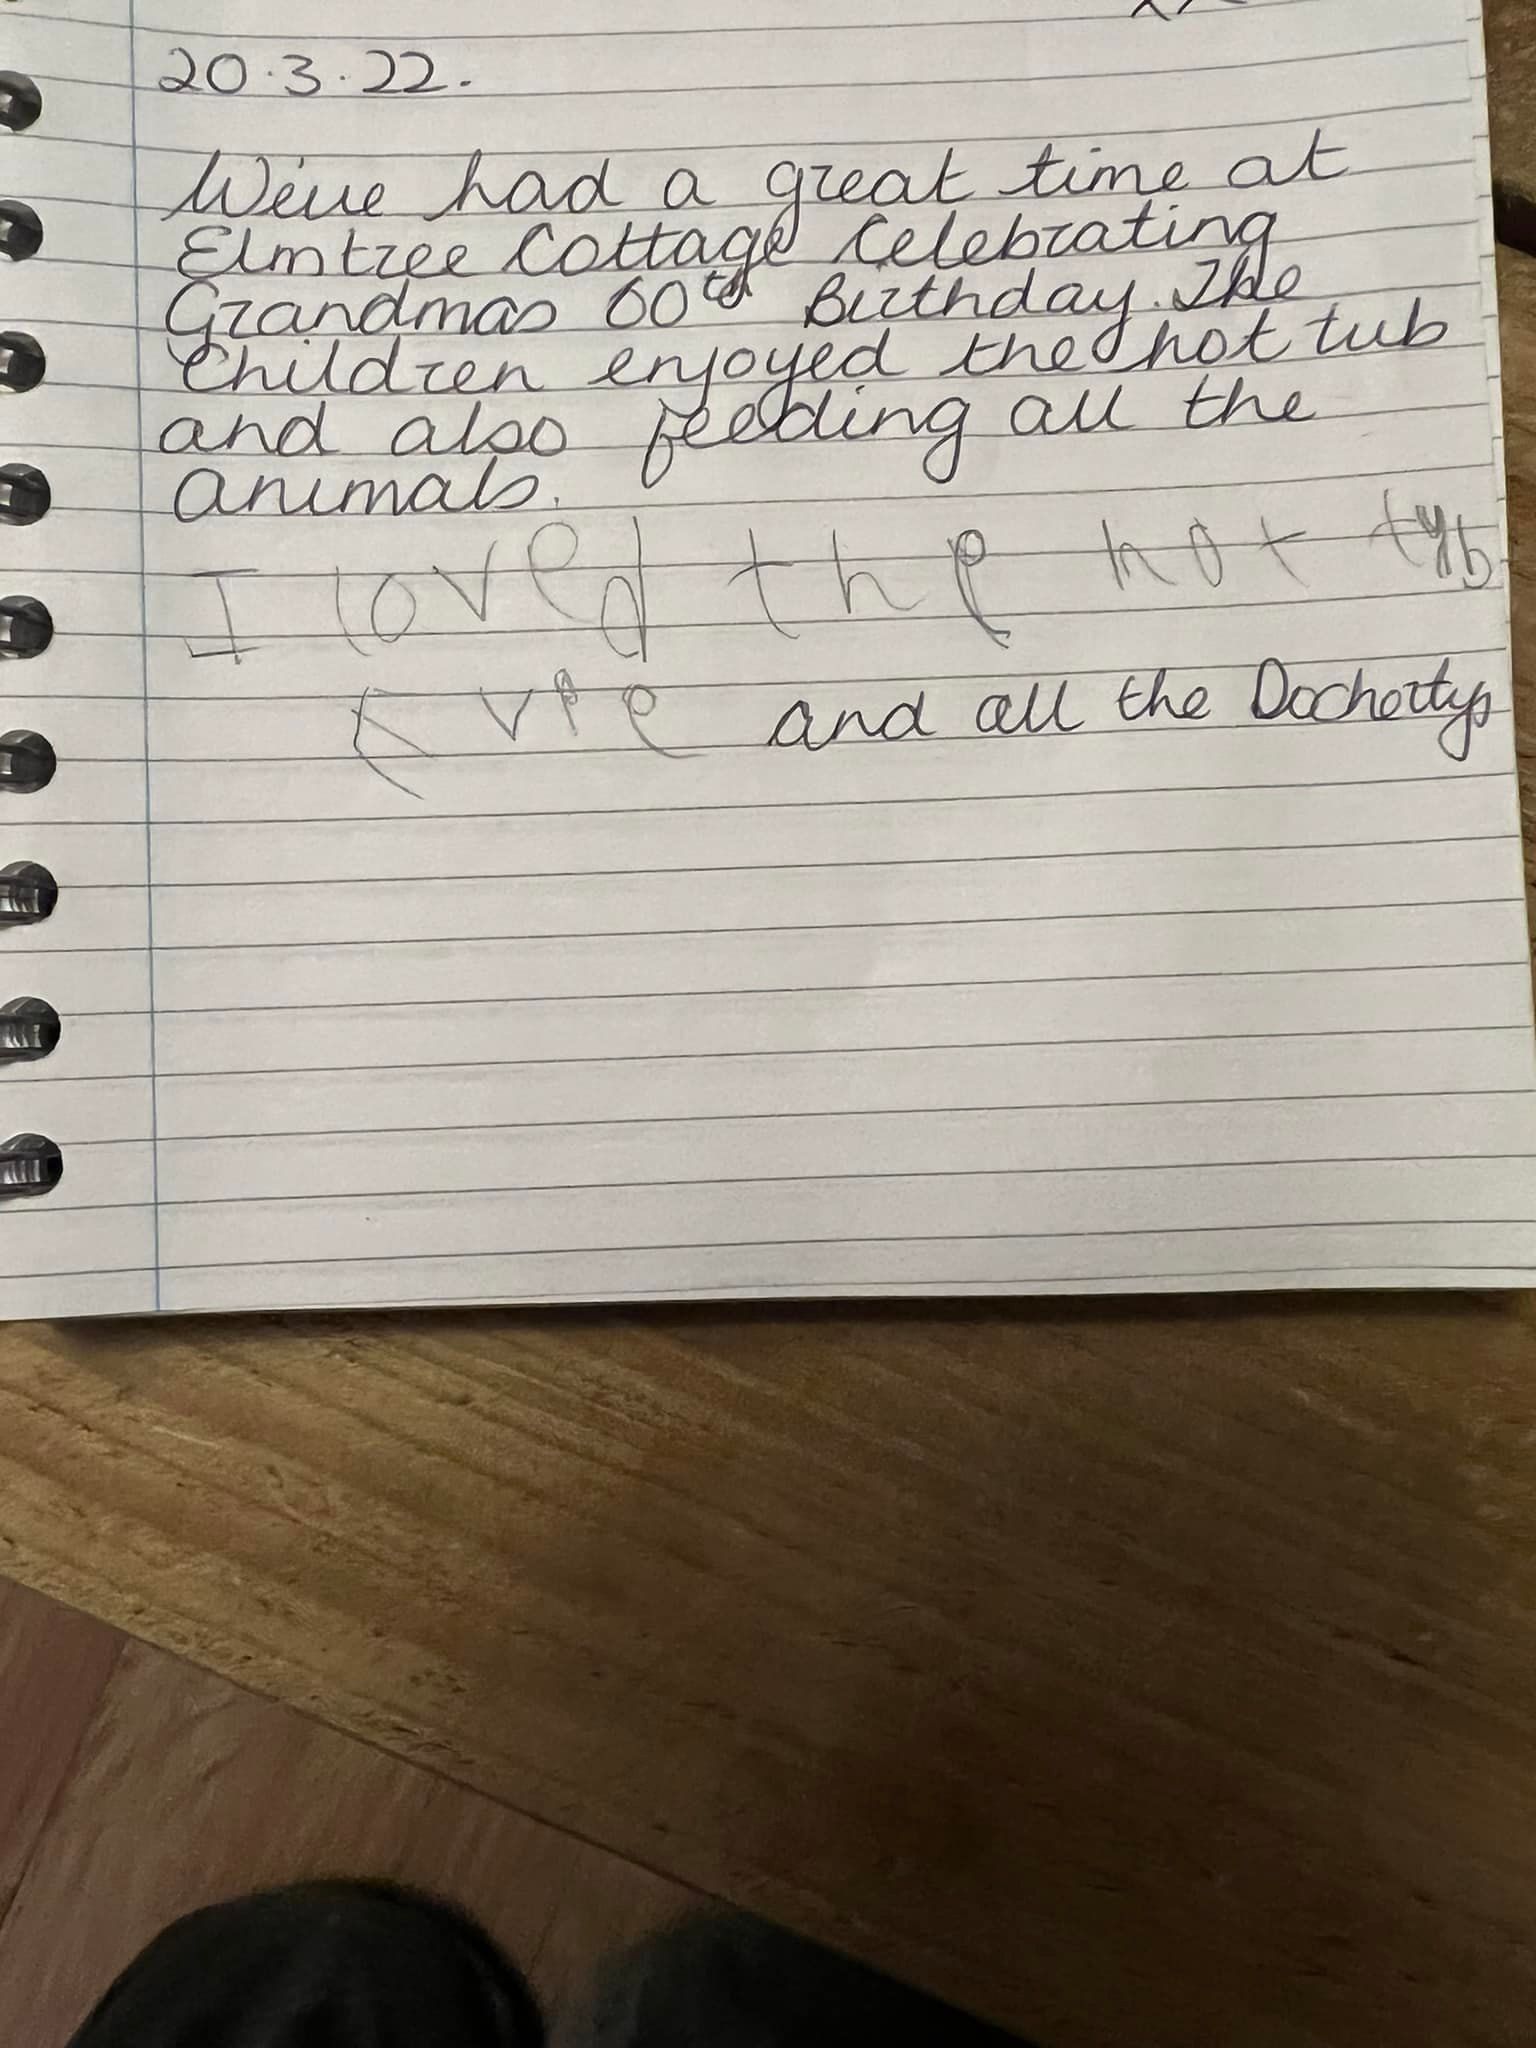 xx
20.3.22.
We've had a great time at
Elmtree Cottage Celebrating
Grandmas 60th Birthday. The
Children enjoyed the hot tub
and also feeding all the
animals.
I loved the hot tub
and all the Dochertys